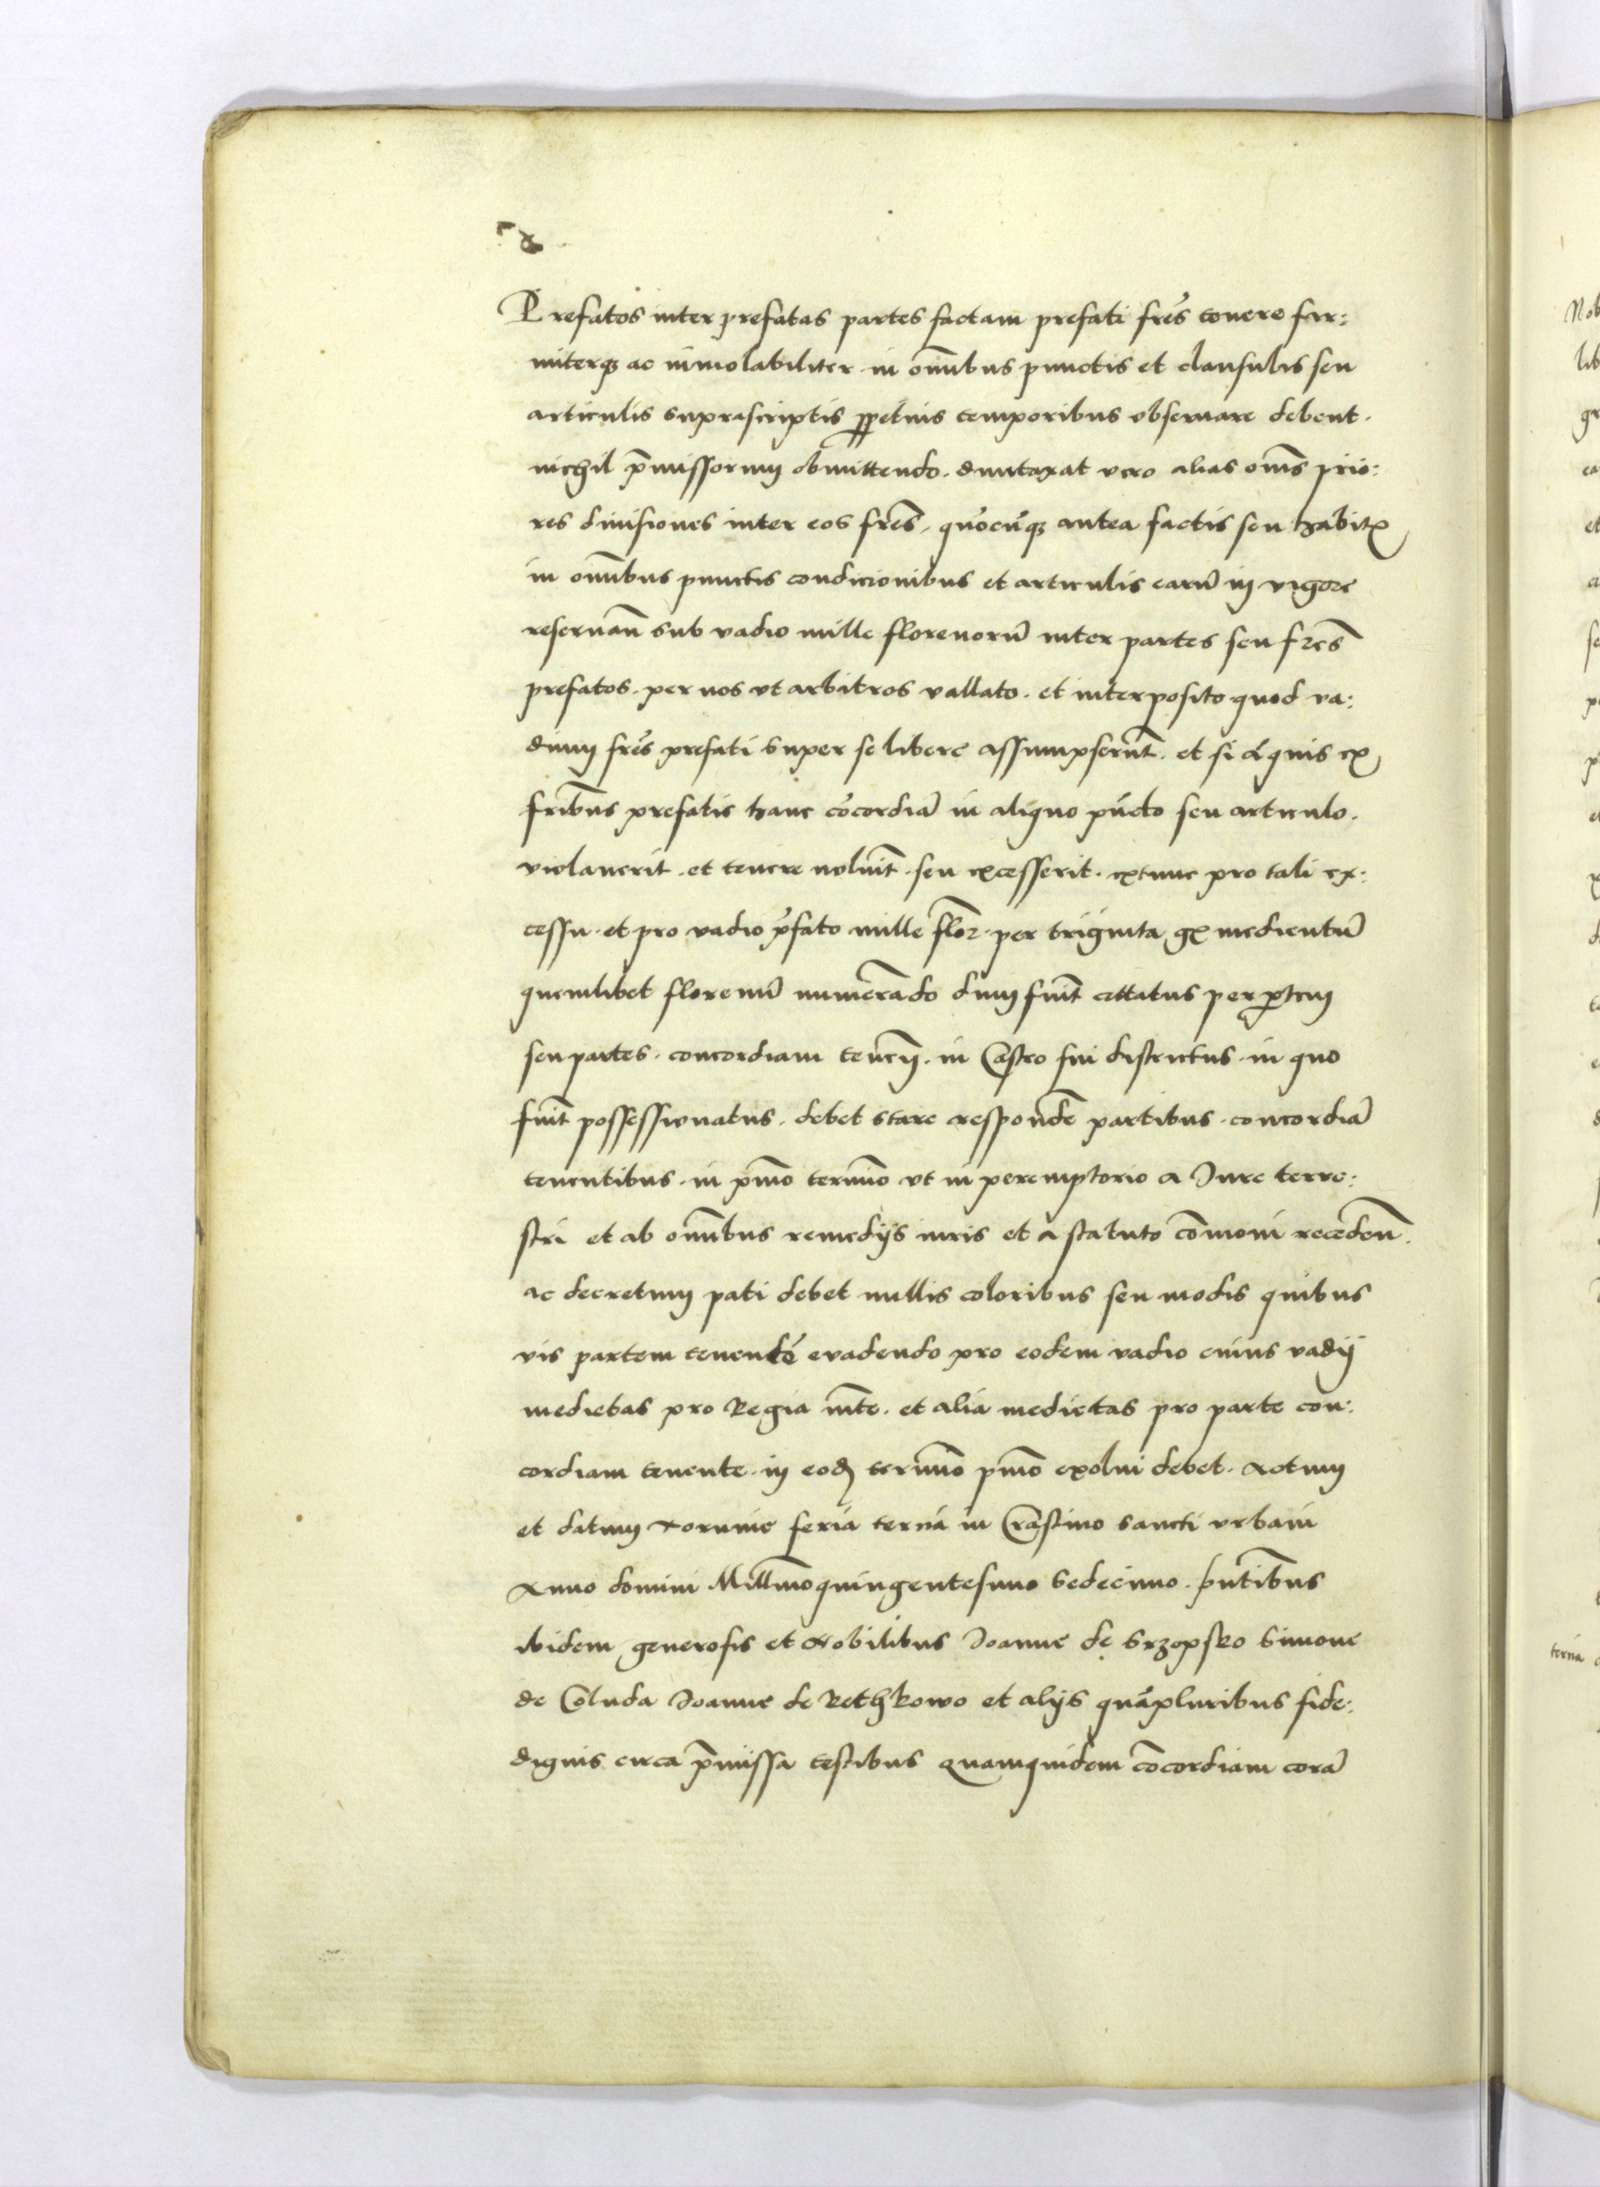 Prefatos inter prefatas partes factam prefati frēs tenere far:
miterq3 ac inviolabiliter in oīnbus punctis et clausulis seu
articulis suprascriptis ꝑpetuis temporibus observare debent.
nichil p̄missorum obmittendo. dumtaxat vero alias oīns prio:
res divisiones inter eos frēs, quōcūq3 antea factis seu habitꝭ
in oīnbus punctis condicionibus et articulis earū in vigore
reservan̄ sub vadio mille florenorū inter partes seu frēs
prefatos. per nos ut arbitros vallato. et interposito quod va:
dium frēs prefati super se libere assumpserūt. et si aliquis ex
frībus prefatis hanc cōcordiā in aliquo pūcto seu articulo.
violaverit. et tenere noluīt. seu excesserit. extunc pro tali ex:
cessu. et pro vadio p̄fato mille flor. per triginta gꝭ medientū
quemlibet florenū numerādo dum fuīt cittatus per ꝑtem
seu partes. concordiam tenen̄. in Castro sui districtus. in quo
fuīt possessionatus. debet stare respondē partibus. concordiā
tenentibus. in pīmo termīo ut in peremptorio a Jure terre:
stri et ab oīnbus remedijs iuris et a statuto cōmoni receden̄.
ac decretum pati debet nullis coloribus seu modis quibus
vis partem tenentē evadendo pro eodem vadio cuius vadij
medietas pro Regia mte. et alia medietas pro parte con:
cordiam tenente. in eodꝫ termīo pīmo exolui debet. Actum
et datum Torunie feria tercia in Crastino sancti Urbani
Anno domini Millīmoquingentesimo Sedecimo. pn̄tibus
ibidem generosis et Nobilibus Joanne de Srzopsko Simone
de Coluda Joanne de Rethkowo et alijs quāpluribus fide:
dignis circa p̄missa testibus Quamquidem cōcordiam corā